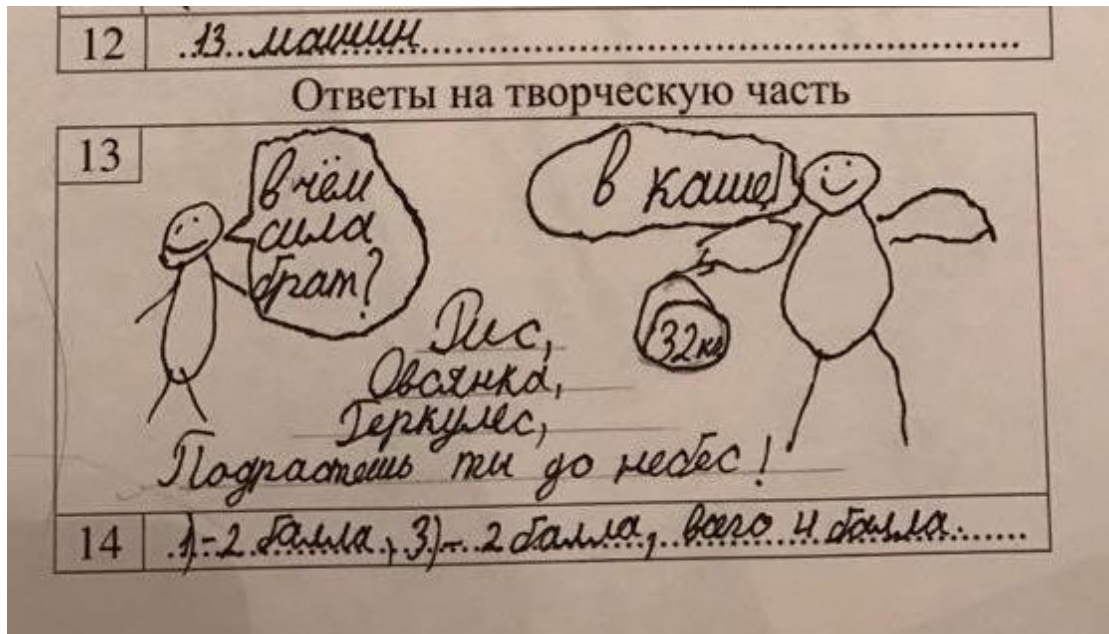 12 13 машин
Ответы на творческую часть
13
В чём
сила
брат?
В каше!
32кг
Рис,
Овсянка,
Геркулес,
Подрастешь ты до небес!
14 1)-2 балла, 3)- 2 балла, всего 4 балла.